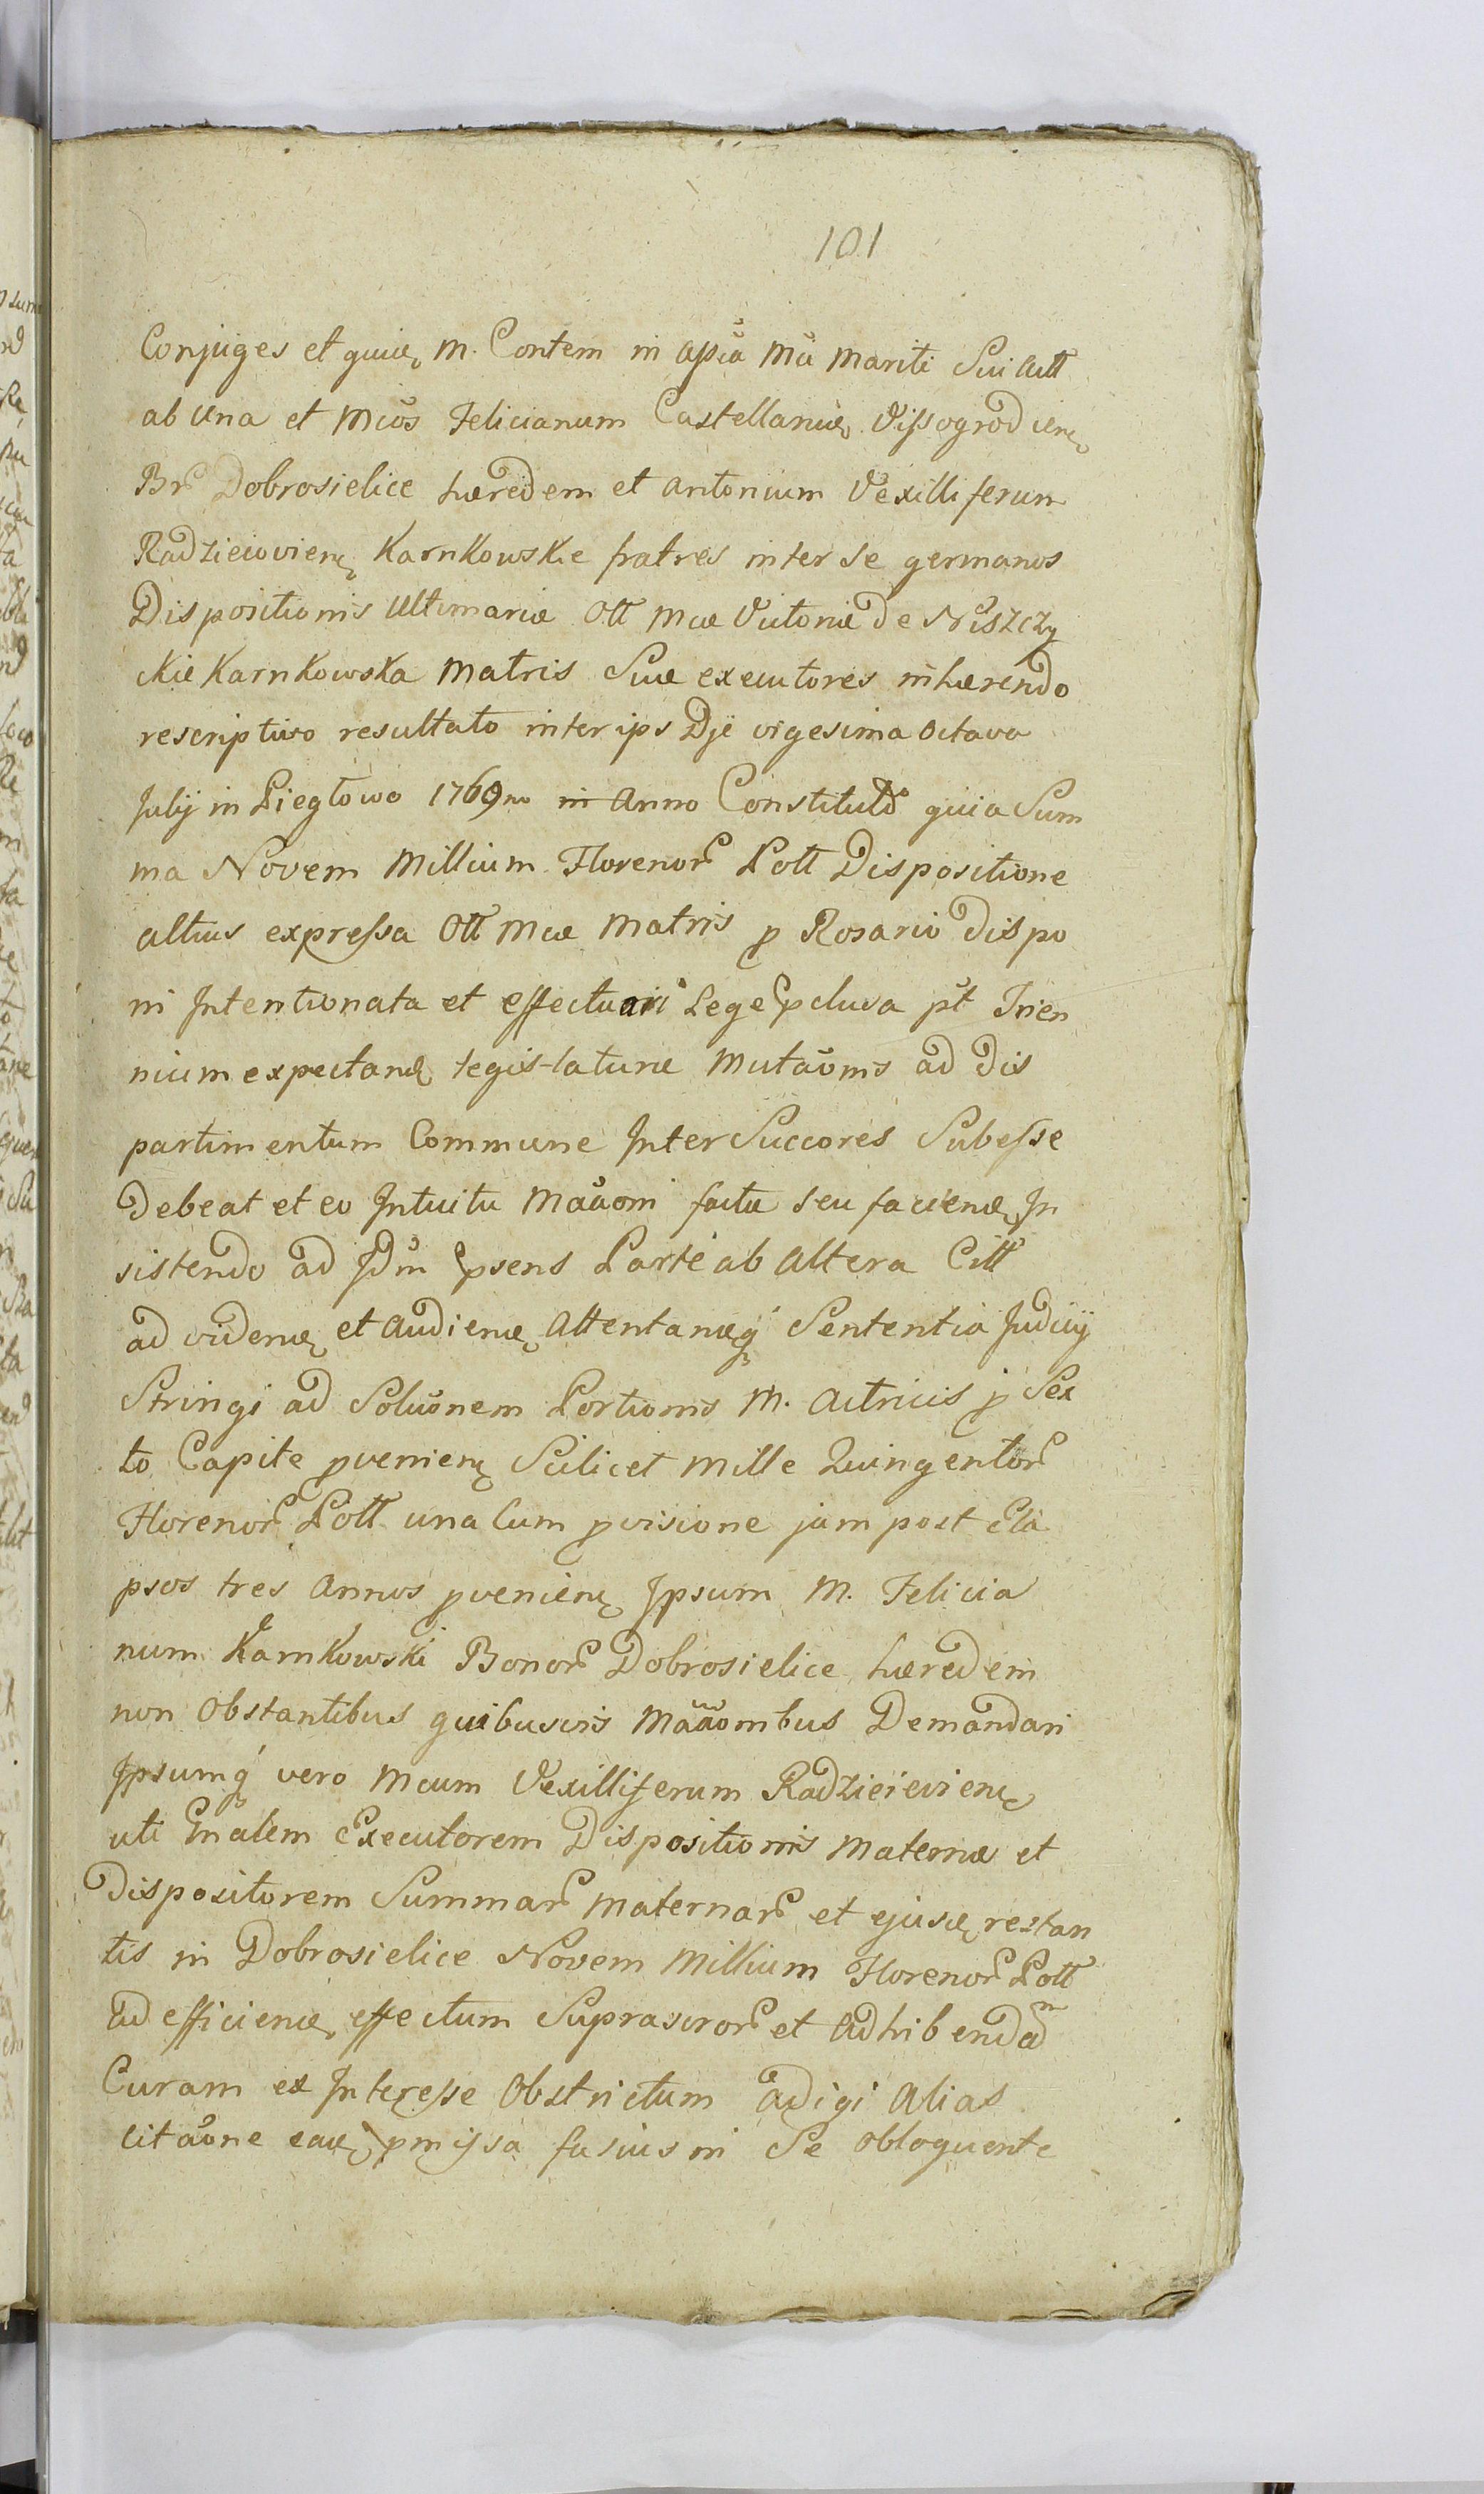 101
Conjuges et quidę M. Contem in assia Mci Mariti Sui Act
ab una et Mcos Felicianum Castellanidę Vissogrodienę
Br Dobrosielice hæredem et Antonium Vexilliferum
Radziejovienę Karnkowskie fratres inter se germanos
Dispositionis Ultimariæ Ott Mcæ Victoriæ De Niszczy
ckie Karnkowska Matris Suæ executores inhærendo
rescriptivo resultato inter ips Dje vigesima Octava
July in Liegłowo 1769no in Anno Constituto quia Sum
ma Novem Millium Florenor Poll Dispositione
altius expressa Ott Mcæ Matris p Rosario Dispo
ni Intentionata et effectuari Lege pclusa pt Trien
nium expectandę legis-laturæ Mutaonis ad Dis
partimentum Commune Inter Succores Subesse
Debeat et eo Intuitu Maaoni factæ seu faciendæ, In
sistendo ad Idm psens Parte ab Altera Citt
ad videndę et audiendę Attentandęq Sententia Judicij
Stringi ad Soluonem Portionis M. Actricis p Sex
to Capite pvenienę Scilicet Mille Quingentor
Florenor Poll una Cum pvisione jam post Ela
psos tres Annos pvenienę Ipsum M. Felicia
num Karnkowski Bonor Dobrosielice hæredem
non Obstantibus quibusvis Maaonibus Demandari
Ipsumq vero Mcum Vexilliferum Radziejevienę
uti Gnalem Executorem Dispositionis Maternæ et
Dispositorem Summar Maternar et ejusdę restan
tis in Dobrosielice Novem Millium Florenor Poll
ad efficiendę effectum Suprascror et adhibendam
Curam ex Interesse Obstrictum adigi Alias
citaone eadę pmissa fusius in Se Obloquente